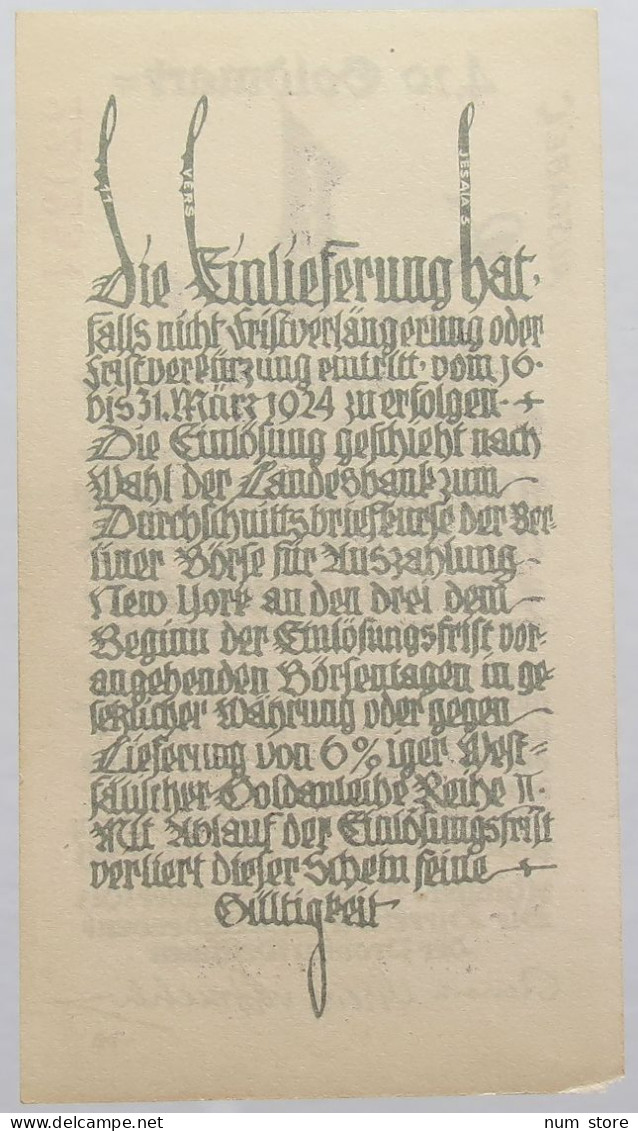 11
VERS
JESAIA 3
Die Einlieferung hat,
falls nicht Fristverlängerung oder
Fristverkürzung eintritt, vom 16.
bis 31. März 1924 zu erfolgen.
Die Einlösung geschieht nach
Wahl der Landesbank zum
Durchschnittsbriefkurse der Ber-
liner Börse für Auszahlung
New York an den drei dem
Beginn der Einlösungsfrist vor-
angehenden Börsentagen in ge-
setzlicher Währung oder gegen
Lieferung von 6% iger West-
fälischer Goldanleihe Reihe II.
Mit Ablauf der Einlösungsfrist
verliert dieser Schein seine
Gültigkeit
num store